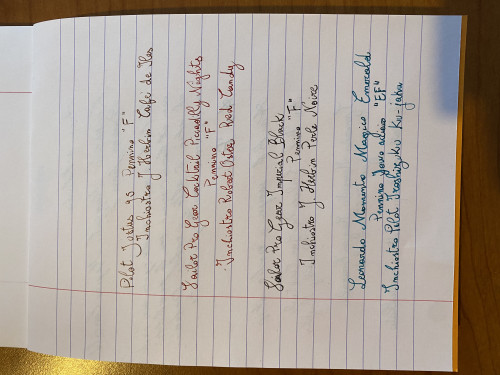 Pilot Justus 95 Pennino "F"
Inchiostro J. Herbin Café des Iles
Sailor Pro Gear Cocktail Piccadilly Nights
Pennino "F"
Inchiostro Robert Oster Red Candy
Sailor Pro Gear Imperial Black
Pennino "F"
Inchiostro J. Herbin Perle Noire
Leonardo Momento Magico Emerald
Pennino "EF"
Inchiostro Pilot Iroshizuku Ku-jaku